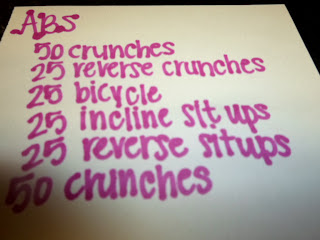 ABS
50 crunches
25 reverse crunches
25 bicycle
25 incline sit ups
25 reverse situps
50 crunches